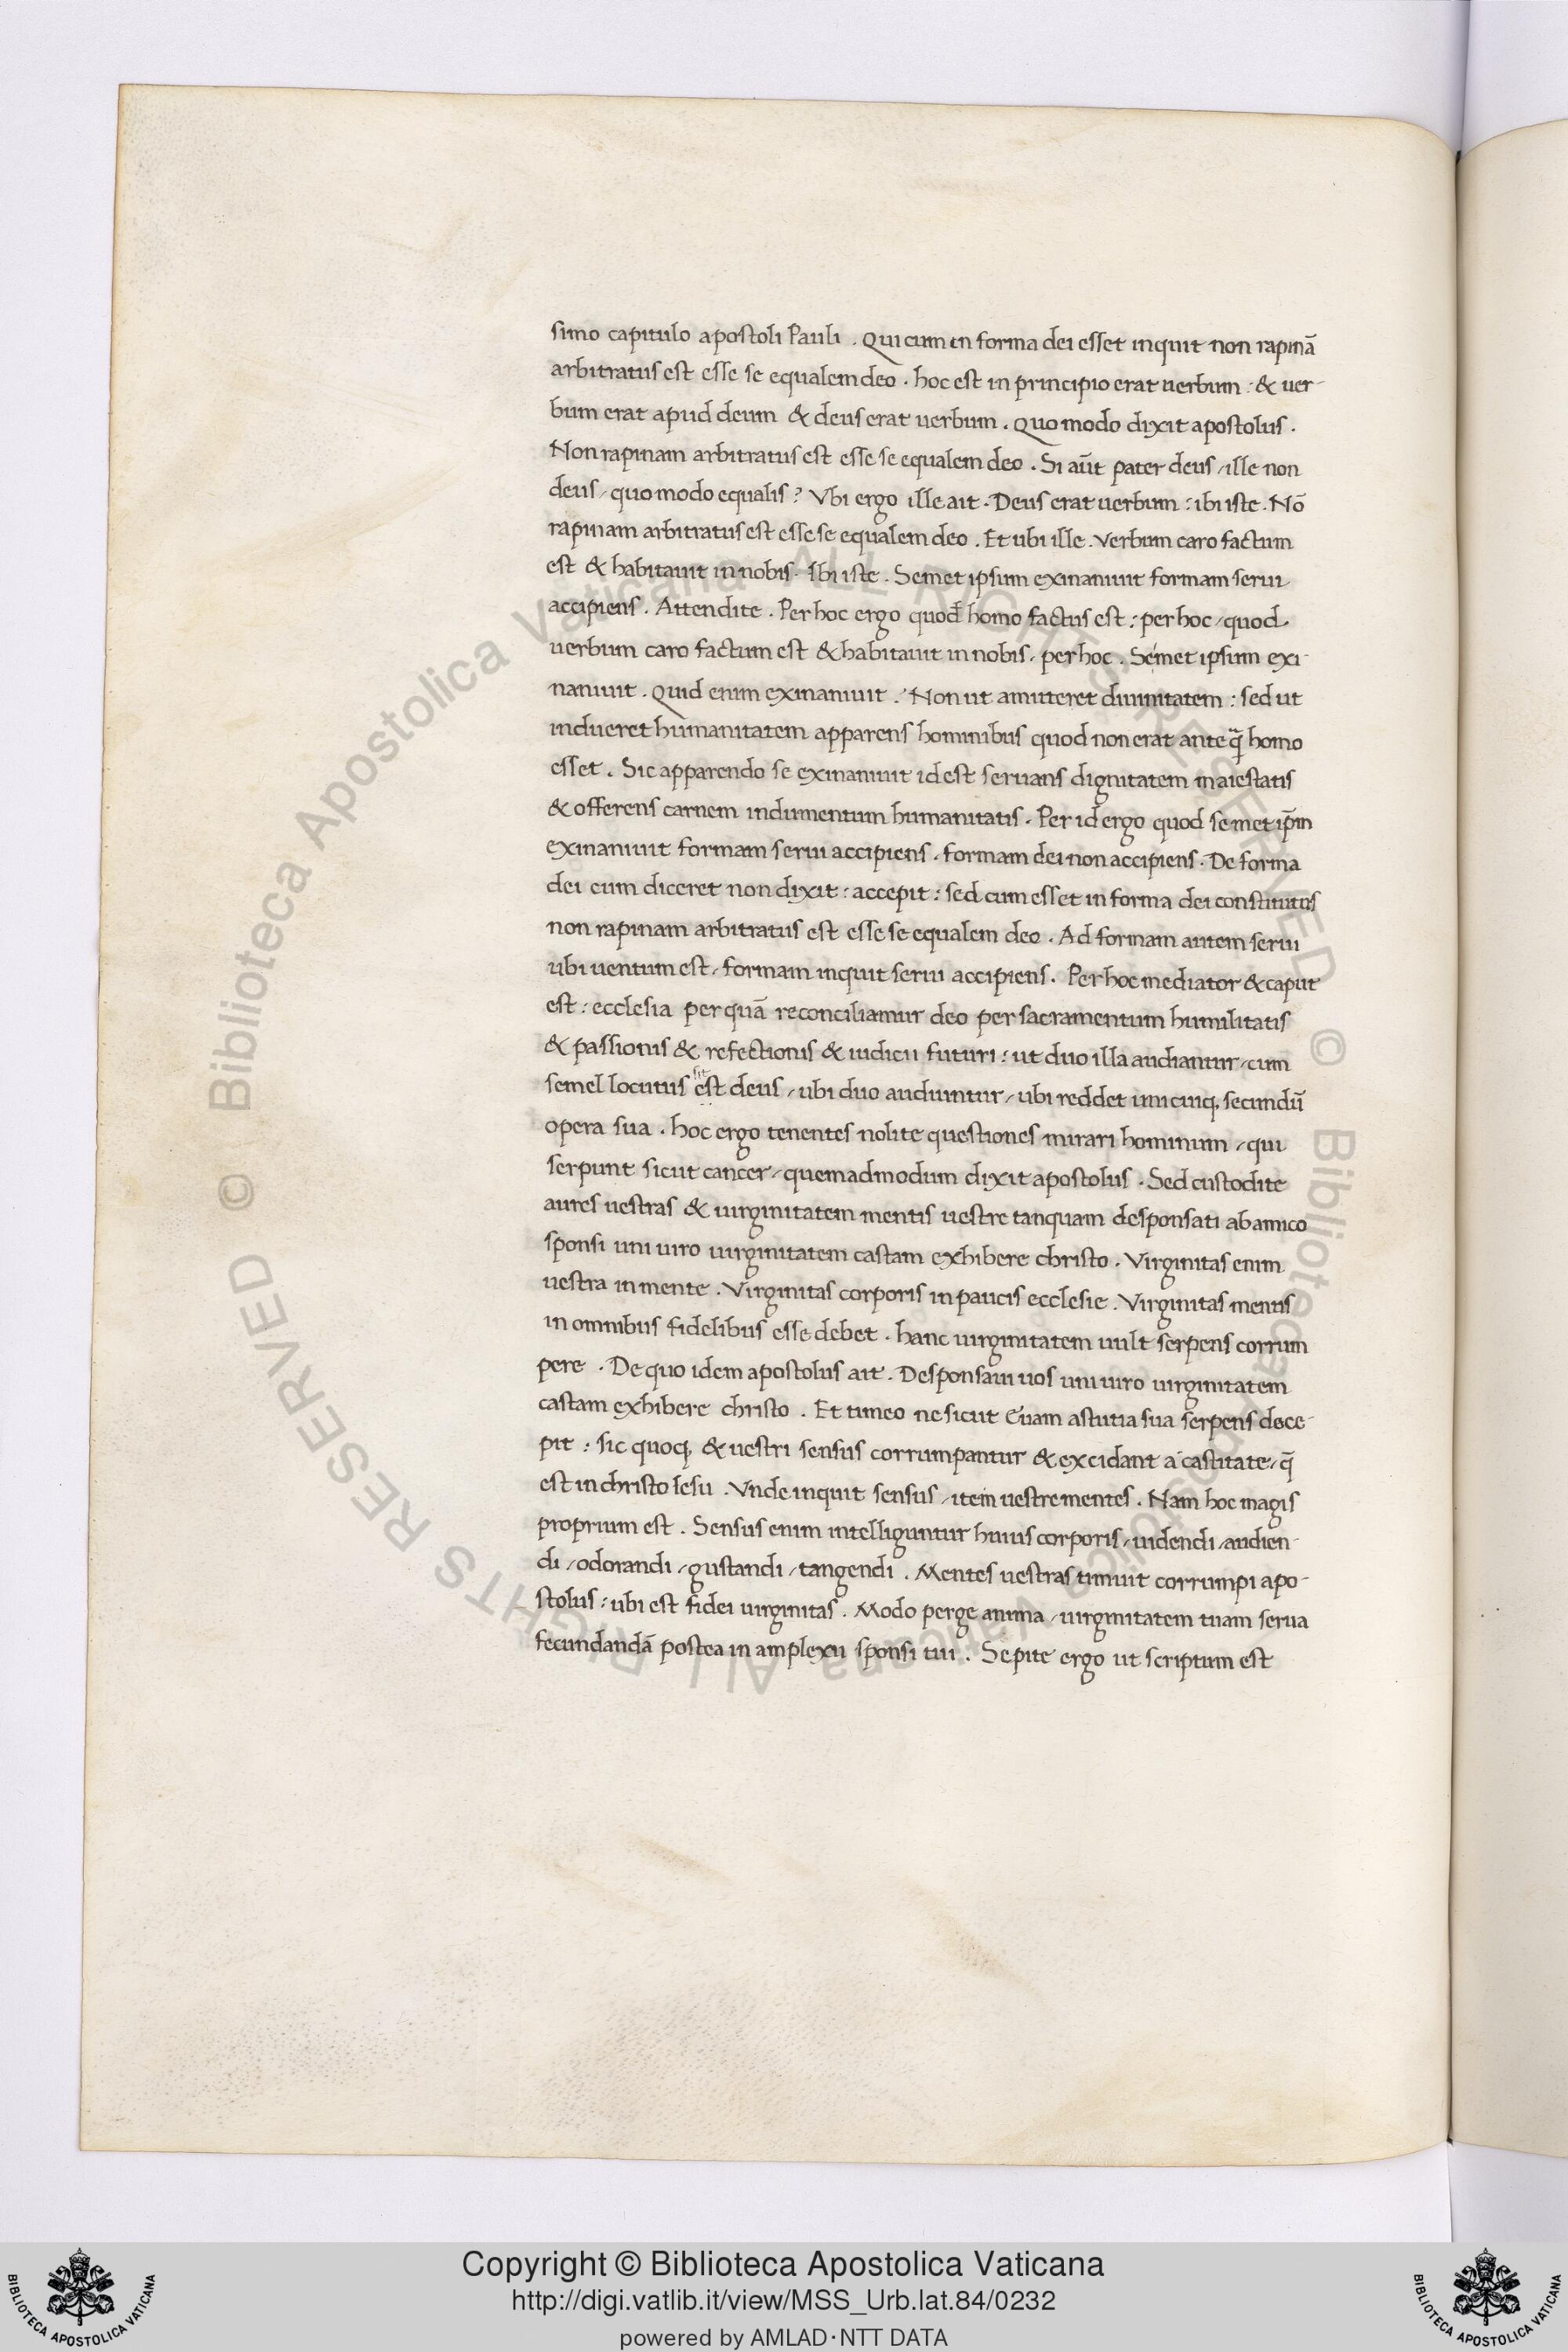 simo capitulo apostoli Pauli . Qui cum in forma dei esset inquit non rapinā
arbitratus est esse se equalem deo . hoc est in principio erat uerbum : & uer-
bum erat apud deum & deus erat uerbum . Quomodo dixit apostolus .
Non rapinam arbitratus est esse se equalem deo . Si aūt pater deus / ille non
deus / quomodo equalis ? Vbi ergo ille ait . Deus erat uerbum : ibi iste . Nō
rapinam arbitratus est esse se equalem deo . Et ubi ille . Verbum caro factum
est & habitauit in nobis . Ibi iste . Semet ipsum exinaniuit formam serui
accipiens . Attendite . Per hoc ergo quod homo factus est : per hoc / quod
uerbum caro factum est & habitauit in nobis . per hoc . Semet ipsum exi-
naniuit . Quid enim exinaniuit .' Non ut amitteret diuinitatem : sed ut
indueret humanitatem apparens hominibus quod non erat anteq̄ homo
esset . Sic apparendo se exinaniuit id est seruans dignitatem maiestatis
& offerens carnem indumentum humanitatis . Per id ergo quod semet ip̄m
exinaniuit formam serui accipiens . formam dei non accipiens . De forma
dei cum diceret non dixit : accepit : sed cum esset in forma dei constitutus
non rapinam arbitratus est esse se equalem deo . Ad formam autem serui
ubi uentum est / formam inquit serui accipiens . Per hoc mediator & caput
est : ecclesia per quā reconciliamur deo per sacramentum humilitatis
& passionis & refectionis & iudicii futuri : ut duo illa audiantur / cum
sit
semel locutus est deus / ubi duo audiuntur / ubi reddet unicuiq; secundū
opera sua . hoc ergo tenentes nolite questiones mirari hominum / qui
serpunt sicut cancer / quemadmodum dixit apostolus . Sed custodite
aures uestras & uirginitatem mentis uestre tanquam desponsati ab amico
sponsi uni uiro uirginitatem castam exhibere christo . Virginitas enim
uestra in mente . Virginitas corporis in paucis ecclesie . Virginitas mentis
in omnibus fidelibus esse debet . hanc uirginitatem uult serpens corrum
pere . De quo idem apostolus ait . Desponsaui uos uni uiro uirginitatem
castam exhibere christo . Et timeo ne sicut Euam astutia sua serpens dece-
pit : sic quoq; & uestri sensus corrumpantur & excidant a castitate / q̄
est in christo Iesu . Vnde inquit sensus / item uestre mentes . Nam hoc magis
proprium est . Sensus enim intelliguntur huius corporis / uidendi / audien-
di / odorandi / gustandi / tangendi . Mentes uestras timuit corrumpi apo-
stolus : ubi est fidei uirginitas . Modo perge anima / uirginitatem tuam serua
fecundandā postea in amplexu sponsi tui . Sepite ergo ut scriptum est
© Biblioteca Apostolica Vaticana ALL RIGHTS RESERVED © Biblioteca Apostolica Vaticana ALL RIGHTS RESERVED
Copyright © Biblioteca Apostolica Vaticana
http://digi.vatlib.it/view/MSS_Urb.lat.84/0232
powered by AMLAD·NTT DATA
BIBLIOTECA APOSTOLICA VATICANA
BIBLIOTECA APOSTOLICA VATICANA